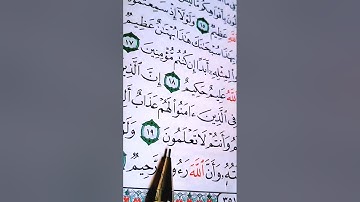 عَظِيمٌ ١٥ وَلَوْلَا إِذْ سَمِعْتُمُو
هَٰذَا بُهْتَٰنٌ عَظِيمٌ
لِمِثْلِهِۦٓ أَبَدًا إِن كُنتُم مُّؤْمِنِينَ ١٧
ٱللَّهُ عَلِيمٌ حَكِيمٌ ١٨ إِنَّ ٱلَّذِينَ
فِى ٱلَّذِينَ ءَامَنُوا۟ لَهُمْ عَذَابٌ
وَأَنتُمْ لَا تَعْلَمُونَ ١٩ وَلَوْ
وَأَنَّ ٱللَّهَ رَءُوفٌ رَّحِيمٌ
٣٥١